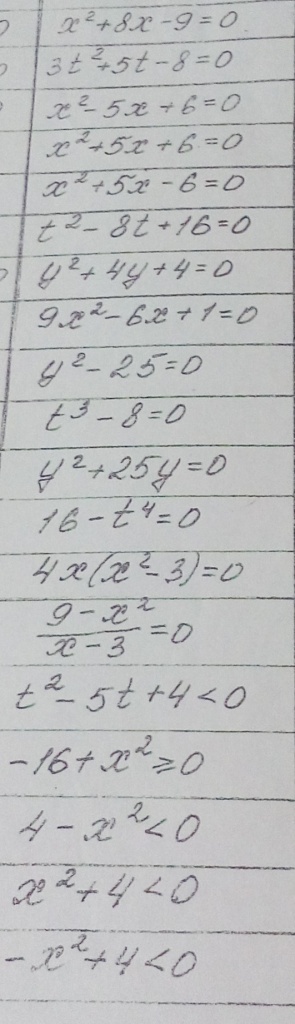 x²+8x-9=0
3t²+5t-8=0
x²-5x+6=0
x²+5x+6=0
x²+5x-6=0
t²-8t+16=0
y²+4y+4=0
9x²-6x+1=0
y²-25=0
t³-8=0
y²+25y=0
16-t⁴=0
4x(x²-3)=0
(9-x²)/(x-3)=0
t²-5t+4<0
-16+x²≥0
4-x²<0
x²+4<0
-x²+4<0